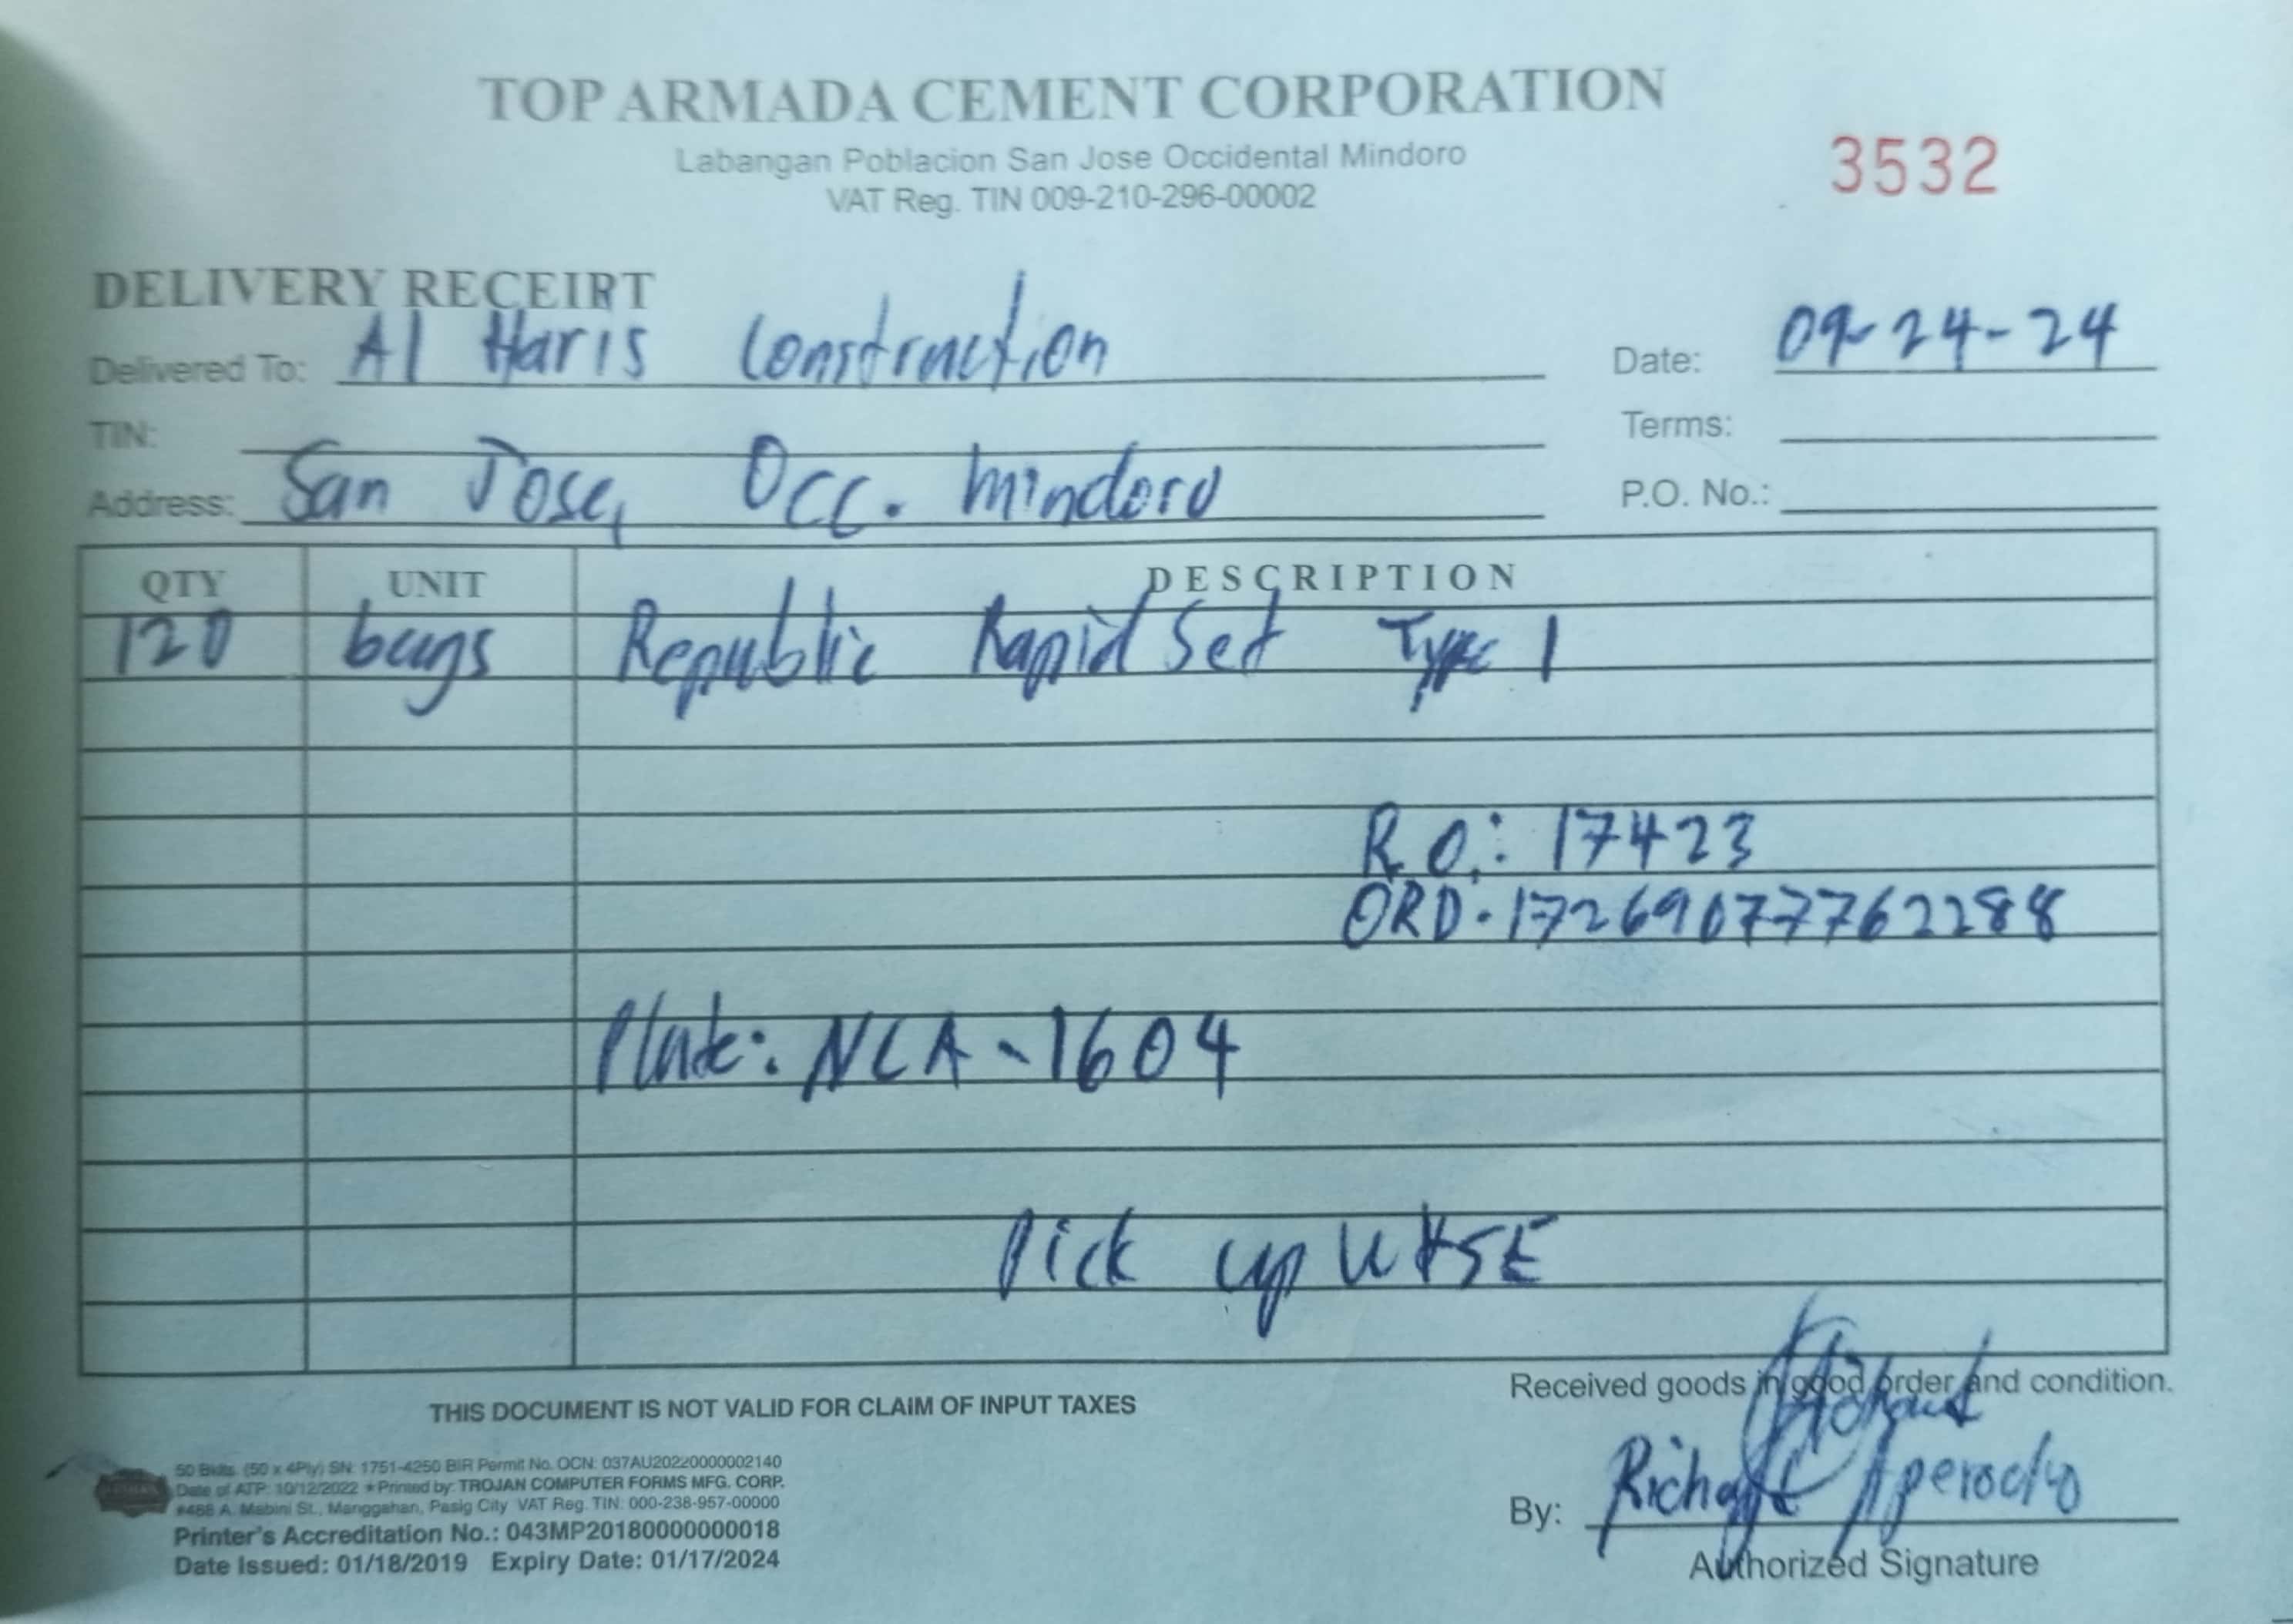 TOP ARMADA CEMENT CORPORATION
Labangan Poblacion San Jose Occidental Mindoro
VAT Reg. TIN 009-210-296-00002
3532
DELIVERY RECEIPT
Delivered To: Al Haris Construction
Date: 09-24-24
TIN:
Terms:
Address: San Jose, Occ. Mindoro
P.O. No.:
QTY UNIT DESCRIPTION
120 bags Republic Rapid Set Type 1
R.O.: 17423
ORD. 17269077762288
Plate: NCA-1604
Pick up WHSE
THIS DOCUMENT IS NOT VALID FOR CLAIM OF INPUT TAXES
Received goods in good order and condition.
50 Bklts. (50 x 4Ply) SN: 1751-4250 BIR Permit No. OCN: 037AU20220000002140
Date of ATP: 10/12/2022 ★Printed by: TROJAN COMPUTER FORMS MFG. CORP.
#488 A. Mabini St., Manggahan, Pasig City VAT Reg. TIN: 000-238-957-00000
Printer's Accreditation No.: 043MP20180000000018
Date Issued: 01/18/2019 Expiry Date: 01/17/2024
By: Aperocho
Authorized Signature